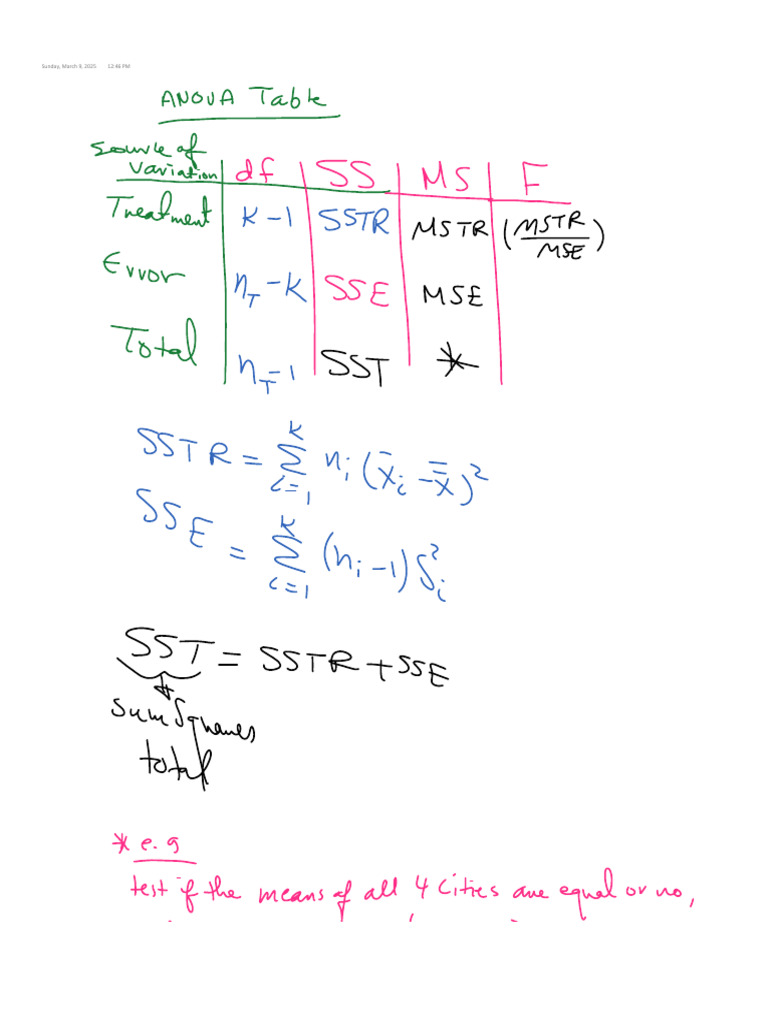 Sunday, March 9, 2025 12:46 PM
ANOVA Table
Source of
Variation df SS MS F
Treatment K-1 SSTR MSTR (MSTR/MSE)
Error n_T-K SSE MSE
Total n_T-1 SST *
SSTR = Σ_{i=1}^{K} n_i (x̄_i - x̿)²
SSE = Σ_{i=1}^{K} (n_i-1) S_i²
SST = SSTR + SSE
Sum Squares
total
* e.g
test if the means of all 4 cities are equal or no,